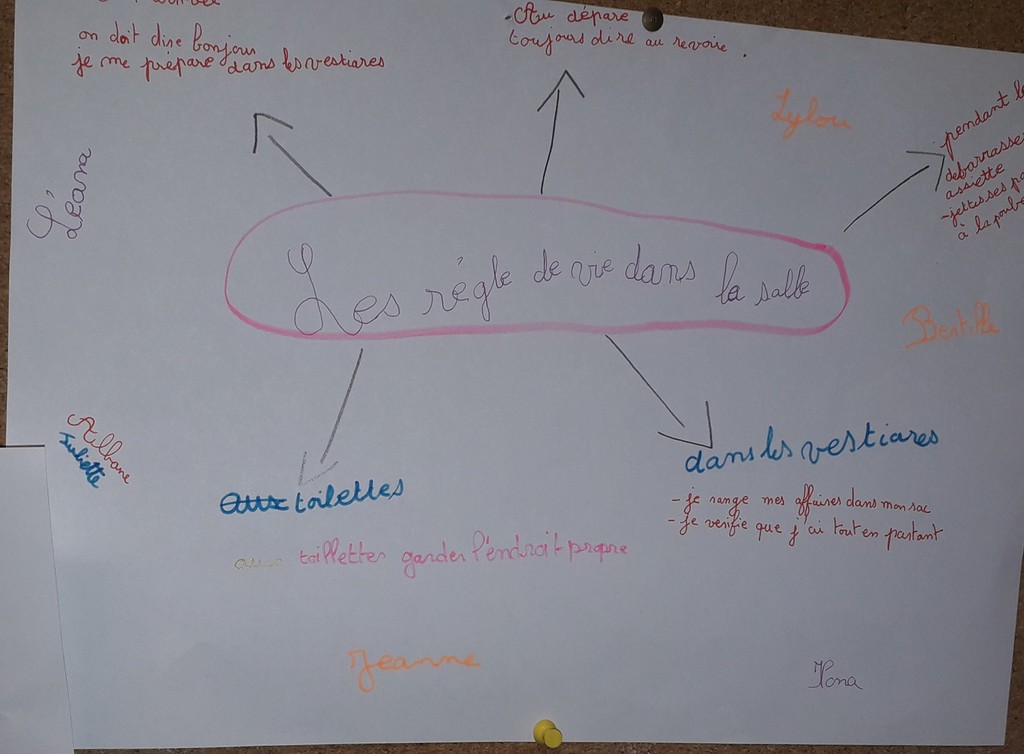 on doit dire bonjour
je me prépare dans les vestiares
. Au dépare
toujours dire au revoire .
Lylou
pendant le
debarrasse
assiette
à la poube
Léana
Les régle de vie dans la salle
Bertille
Albane
Juliette
toilettes
toillettes garder l'endroit propre
dans les vestiares
- je range mes affaires dans mon sac
- je vérifie que j'ai tout en partant
Jeanne
Ilona